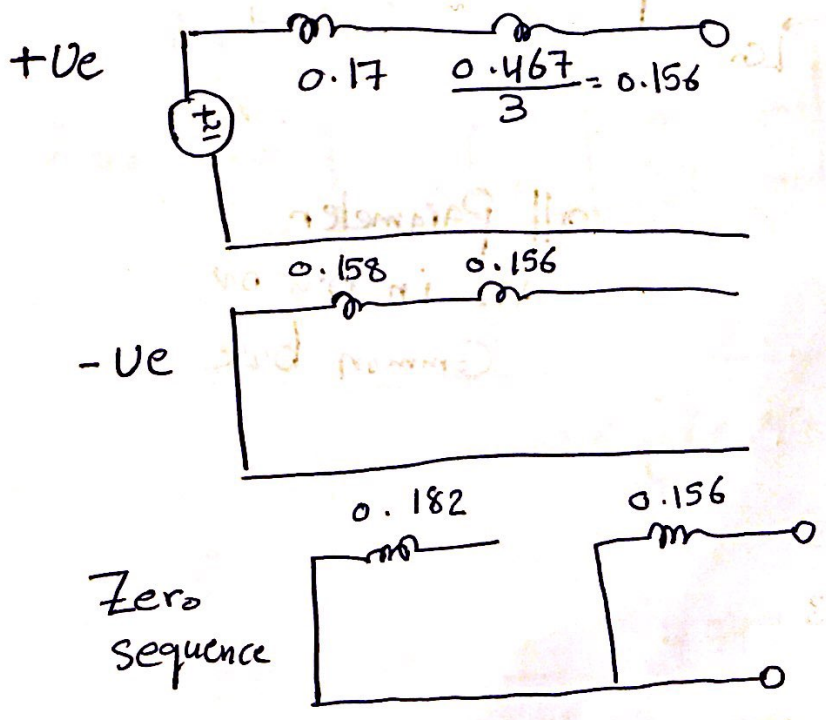 +Ve
0.17
0.467/3 = 0.156
0.158 0.156
-Ve
0.182
0.156
Zero
sequence